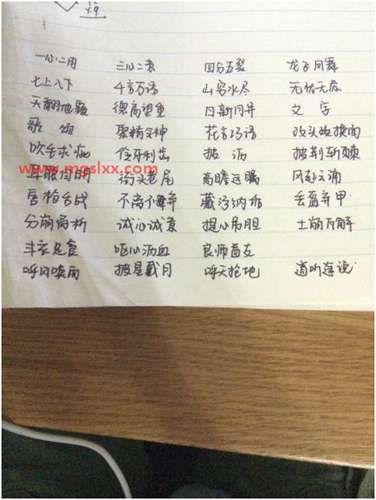 一心二用 三心二意 四分五裂 龙飞凤舞
七上八下 千言万语 山穷水尽 无忧无虑
天翻地覆 德高望重 日新月异 文字
歌颂 聚精会神 花言巧语 改头换面
吹毛求疵 伶牙利齿 披荆斩棘
高瞻远瞩 风起云涌
www.mgslxx.com
唇枪舌战 藏污纳垢 丢盔弃甲
分崩离析 诚心诚意 提心吊胆 土崩瓦解
丰衣足食 呕心沥血 良师益友
呼风唤雨 披星戴月 呼天抢地 道听途说